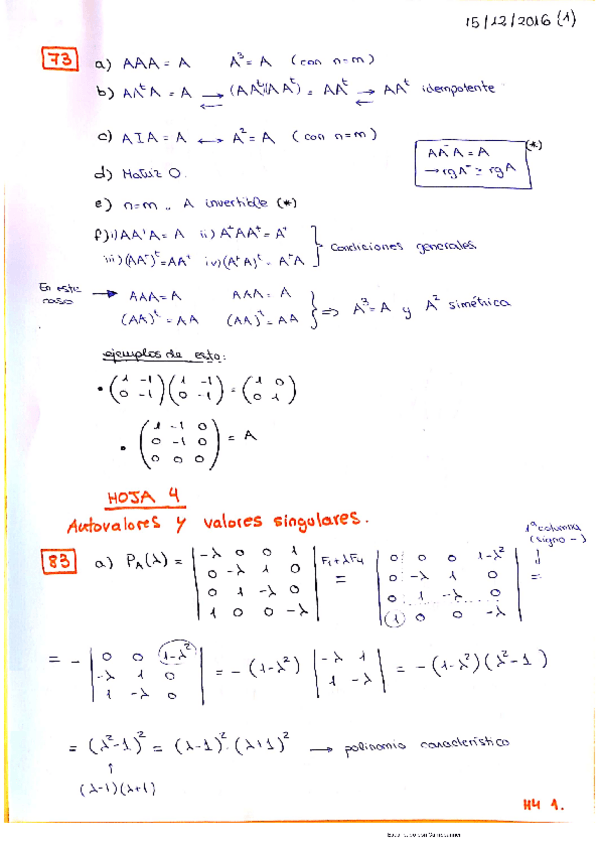 15/12/2016 (1)
73 a) AAA = A   A³ = A (con n=m)
b) AAᵗA = A → (AAᵗ)(AAᵗ) = AAᵗ → AAᵗ idempotente
← ←
c) AIA = A ↔ A² = A (con n=m)
d) Matriz O.
e) n=m ,, A invertible (*)
(*)
AA⁻A = A
→ rg A⁻ ≥ rg A
f) i) AA⁺A = A   ii) A⁺AA⁺ = A⁺
iii) (AA⁺)ᵗ = AA⁺   iv) (A⁺A)ᵗ = A⁺A
} Condiciones generales.
En este caso → AAA = A   AAA = A
(AA)ᵗ = AA   (AA)ᵗ = AA
} ⇒ A³ = A y A² simétrica
ejemplos de esto:
• (1 -1; 0 -1) (1 -1; 0 -1) = (1 0; 0 1)
• (1 -1 0; 0 -1 0; 0 0 0) = A
HOJA 4
Autovalores y valores singulares.
1ª columna
(signo -)
83 a) P_A(λ) = |-λ 0 0 1; 0 -λ 1 0; 0 1 -λ 0; 1 0 0 -λ| F₁+λF₄ = |0 0 0 1-λ²; 0 -λ 1 0; 0 1 -λ 0; 1 0 0 -λ| =
= - |0 0 1-λ²; -λ 1 0; 1 -λ 0| = -(1-λ²) |-λ 1; 1 -λ| = -(1-λ²)(λ²-1)
= (λ²-1)² = (λ-1)²·(λ+1)² → polinomio característico
↑
(λ-1)(λ+1)
H4 1.